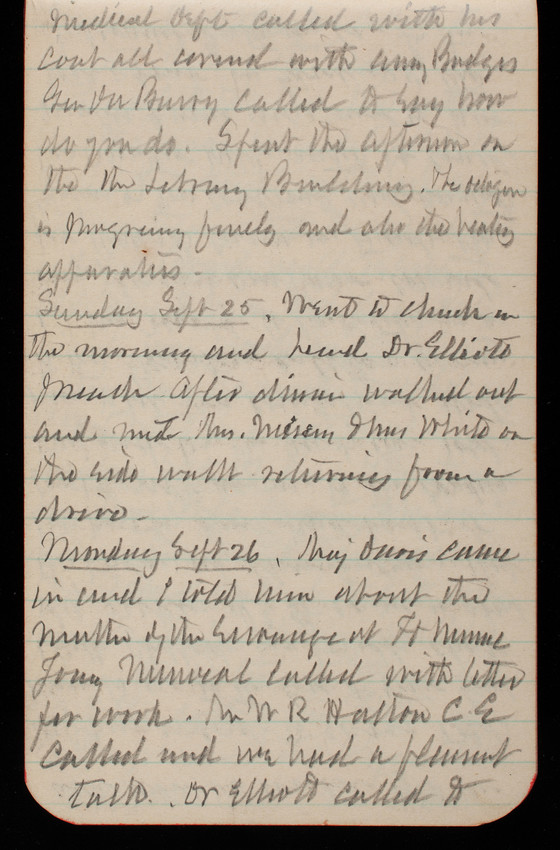 Medical Dept called with his
coat all covered with army Badges
Gen Van Buren called to say how
do you do. Spent the afternoon on
the the Library Building. The octagon
is progressing finely and also the heating
apparatus -
Sunday Sept 25, Went to church in
the morning and heard Dr. Elliott
preach After dinner walked out
and met Mrs. & Mrs White on
the side walk returning from a
drive -
Monday Sept 26, Maj Davis came
in and I told him about the
matter of the at Ft Monroe
called with letter
for work. Mr W R Hatton C E
called and we had a pleasant
talk. Dr Elliott called to